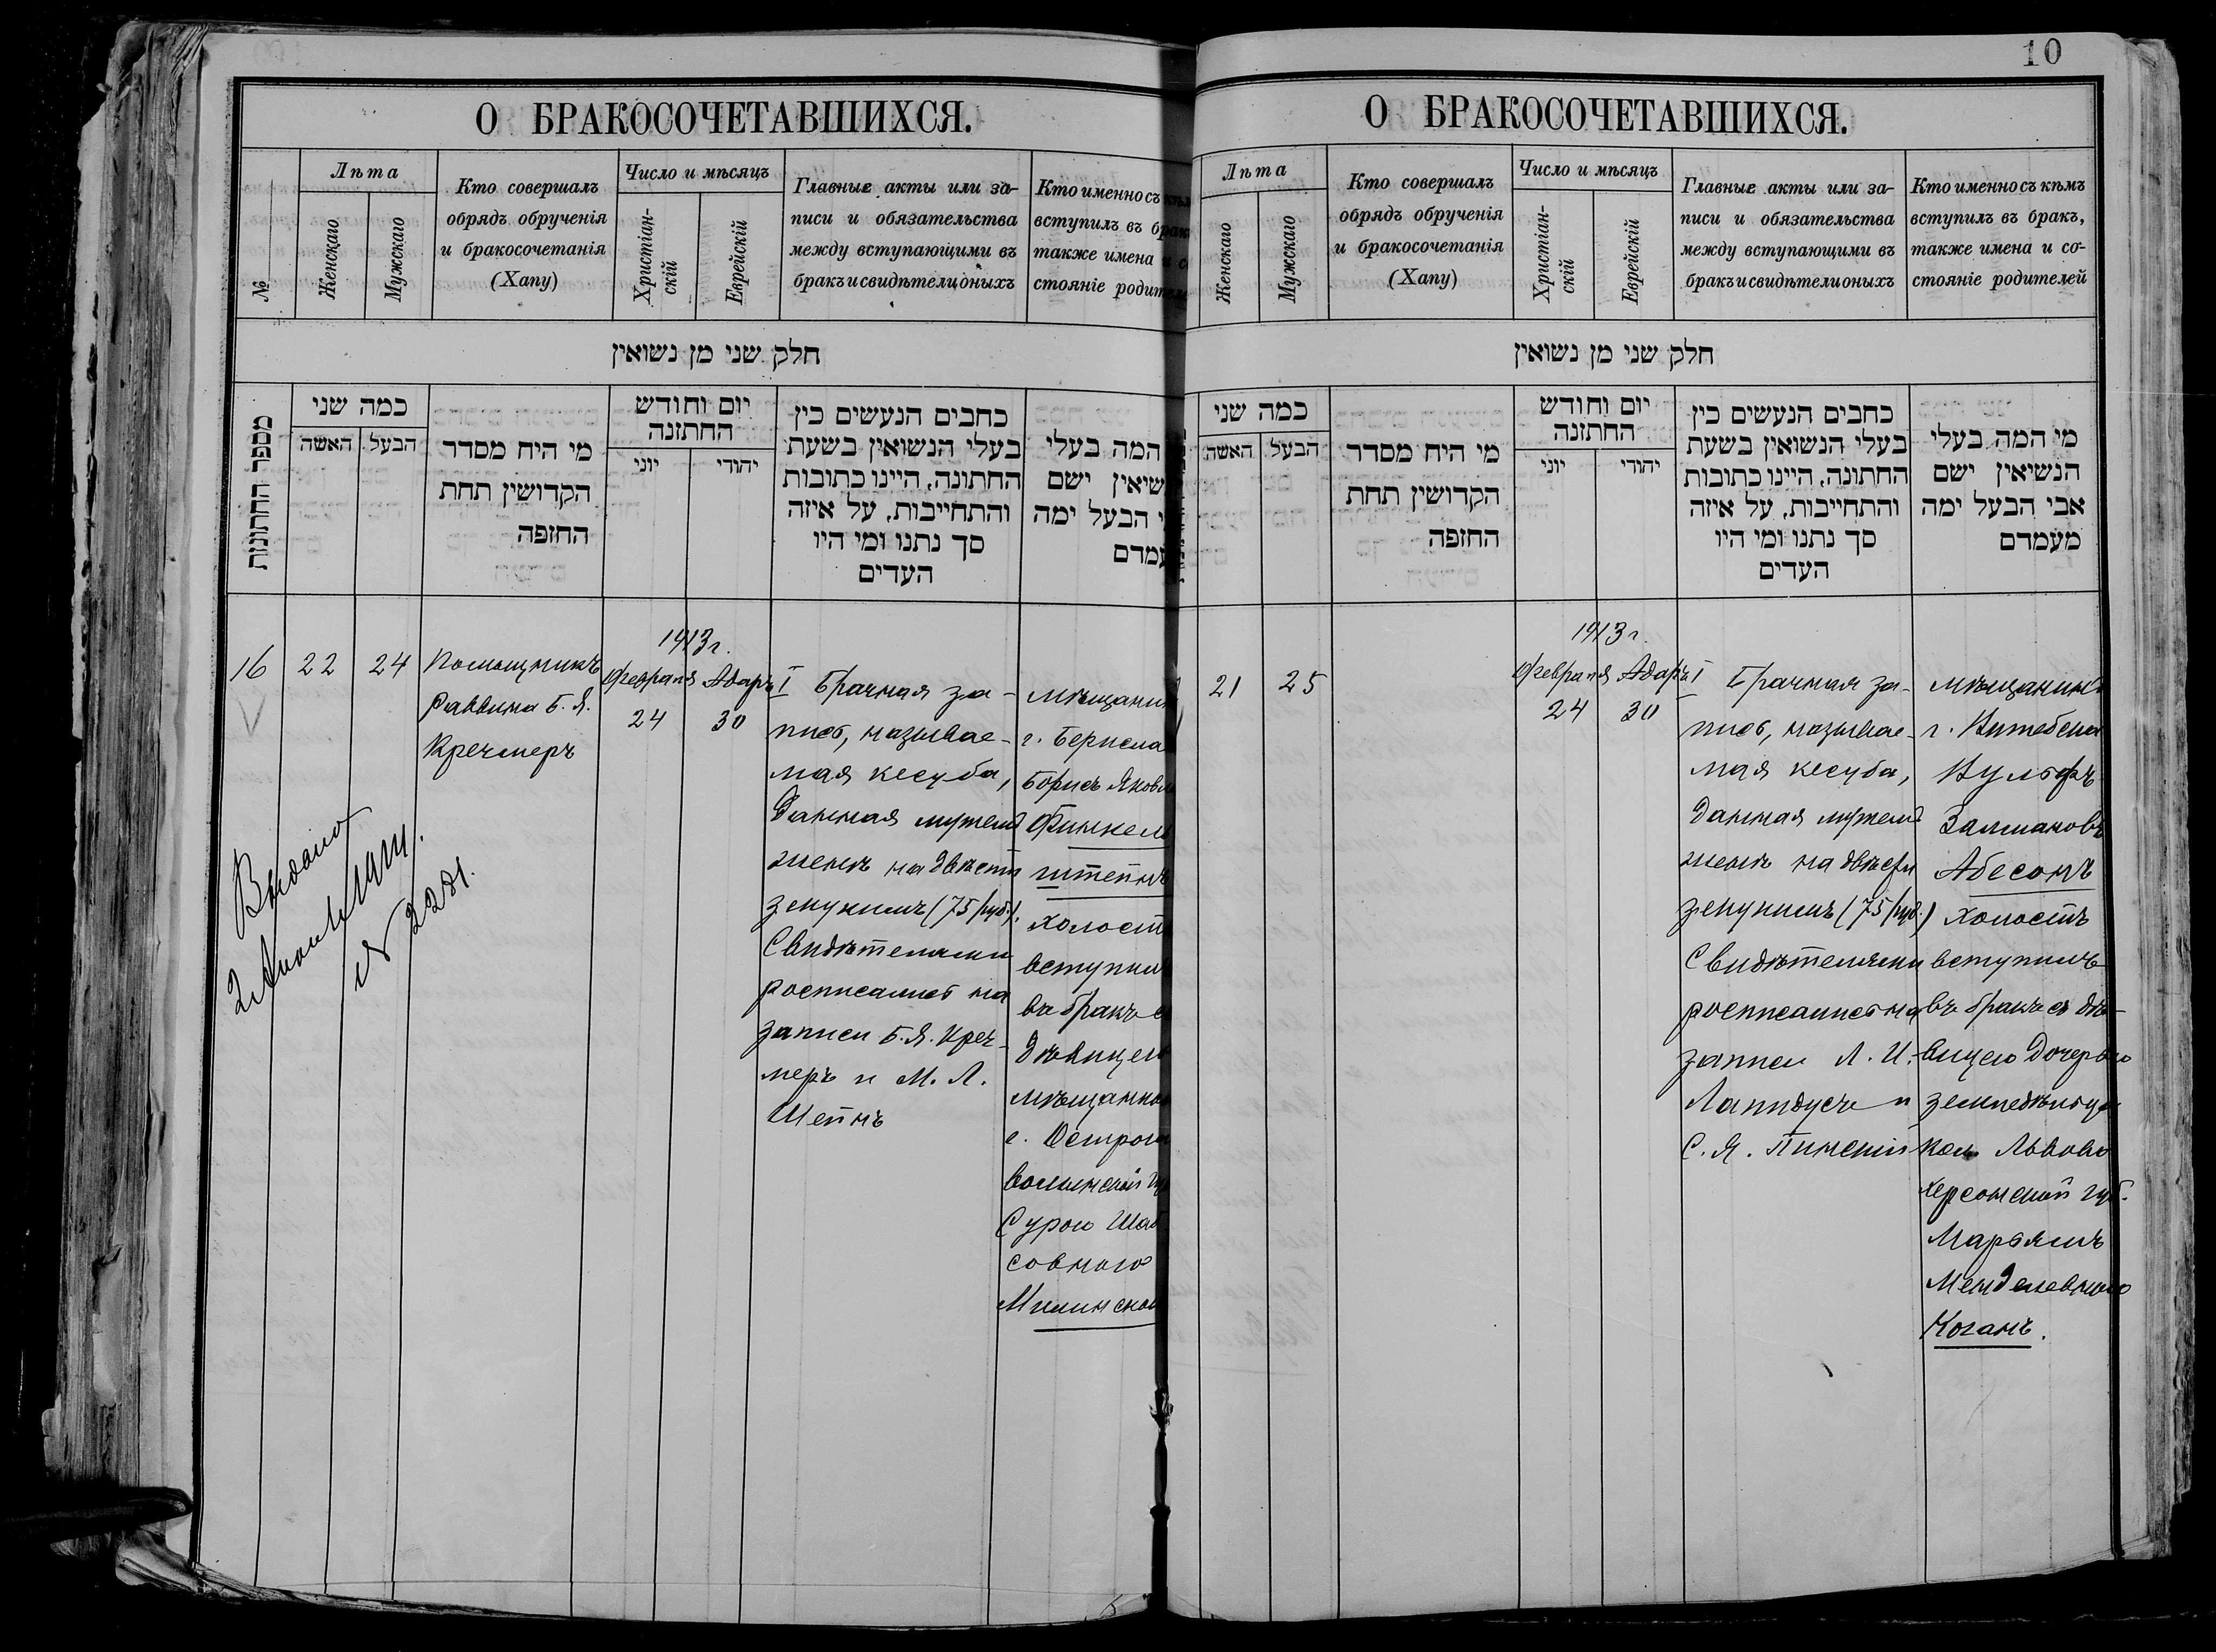 О БРАКОСОЧЕТАВШИХСЯ.
№
Лѣта
Женскаго
Мужскаго
Кто совершалъ
обрядъ обрученія
и бракосочетанія
(Хапу)
Число и мѣсяцъ
Христіан-
скій
Еврейскій
Главные акты или за-
писи и обязательства
между вступающими въ
бракъ и свидѣтели оныхъ
Кто именно съ
вступилъ въ
также имена
стояніе
חלק שני מן נשואין
מספר החתונות
כמה שני
האשה
הבעל
מי היח מסדר
הקדושין תחת
החופה
יום וחודש
החתונה
יוני
יהודי
כתבים הנעשים כין
בעלי הנשואין בשעת
החתונה, היינו כתובות
והתחייבות, על איזה
סך נתנו ומי היו
העדים
המה בעלי
שיאין ישם
הבעל ימה
16
22
24
Помощникъ
Раввина Б. Я.
Кречмеръ
1913 г.
Февраля Адаръ I
24 30
Брачная за-
пись, называе-
мая кесуба,
данная мужемъ
женѣ на двѣсти
зекукимъ (75 руб.).
Свидѣтелями
росписались на
записи Б. Я. Креч-
меръ и М. Л.
Шейнъ
г.
Борисъ
Финкель
штейнъ
холостъ
вступилъ
въ бракъ
дѣвицею
г.
Сурою
совною
Выдано
10
О БРАКОСОЧЕТАВШИХСЯ.
Лѣта
Женскаго
Мужскаго
Кто совершалъ
обрядъ обрученія
и бракосочетанія
(Хапу)
Число и мѣсяцъ
Христіан-
скій
Еврейскій
Главные акты или за-
писи и обязательства
между вступающими въ
бракъ и свидѣтели оныхъ
Кто именно съ кѣмъ
вступилъ въ бракъ,
также имена и со-
стояніе родителей
חלק שני מן נשואין
כמה שני
האשה
הבעל
מי היח מסדר
הקדושין תחת
החופה
יום וחודש
החתונה
יוני
יהודי
כתבים הנעשים כין
בעלי הנשואין בשעת
החתונה, היינו כתובות
והתחייבות, על איזה
סך נתנו ומי היו
העדים
מי המה בעלי
הנשיאין ישם
אבי הבעל ימה
מעמדם
21
25
1913 г.
Февраля Адаръ I
24 30
Брачная за-
пись, называе-
мая кесуба,
данная мужемъ
женѣ на двѣсти
зекукимъ (75 руб.)
Свидѣтелями
росписались на
записи Л. И.
Лапидусъ и
С. Я.
Мѣщанинъ
г. Витебска
Вульфъ
Залмановъ
Абесонъ
холостъ
вступилъ
въ бракъ съ дѣ-
вицею дочерью
земледѣльца
кол. Львово
Херсонской губ.
Марьямъ
Менделевною
Коганъ.